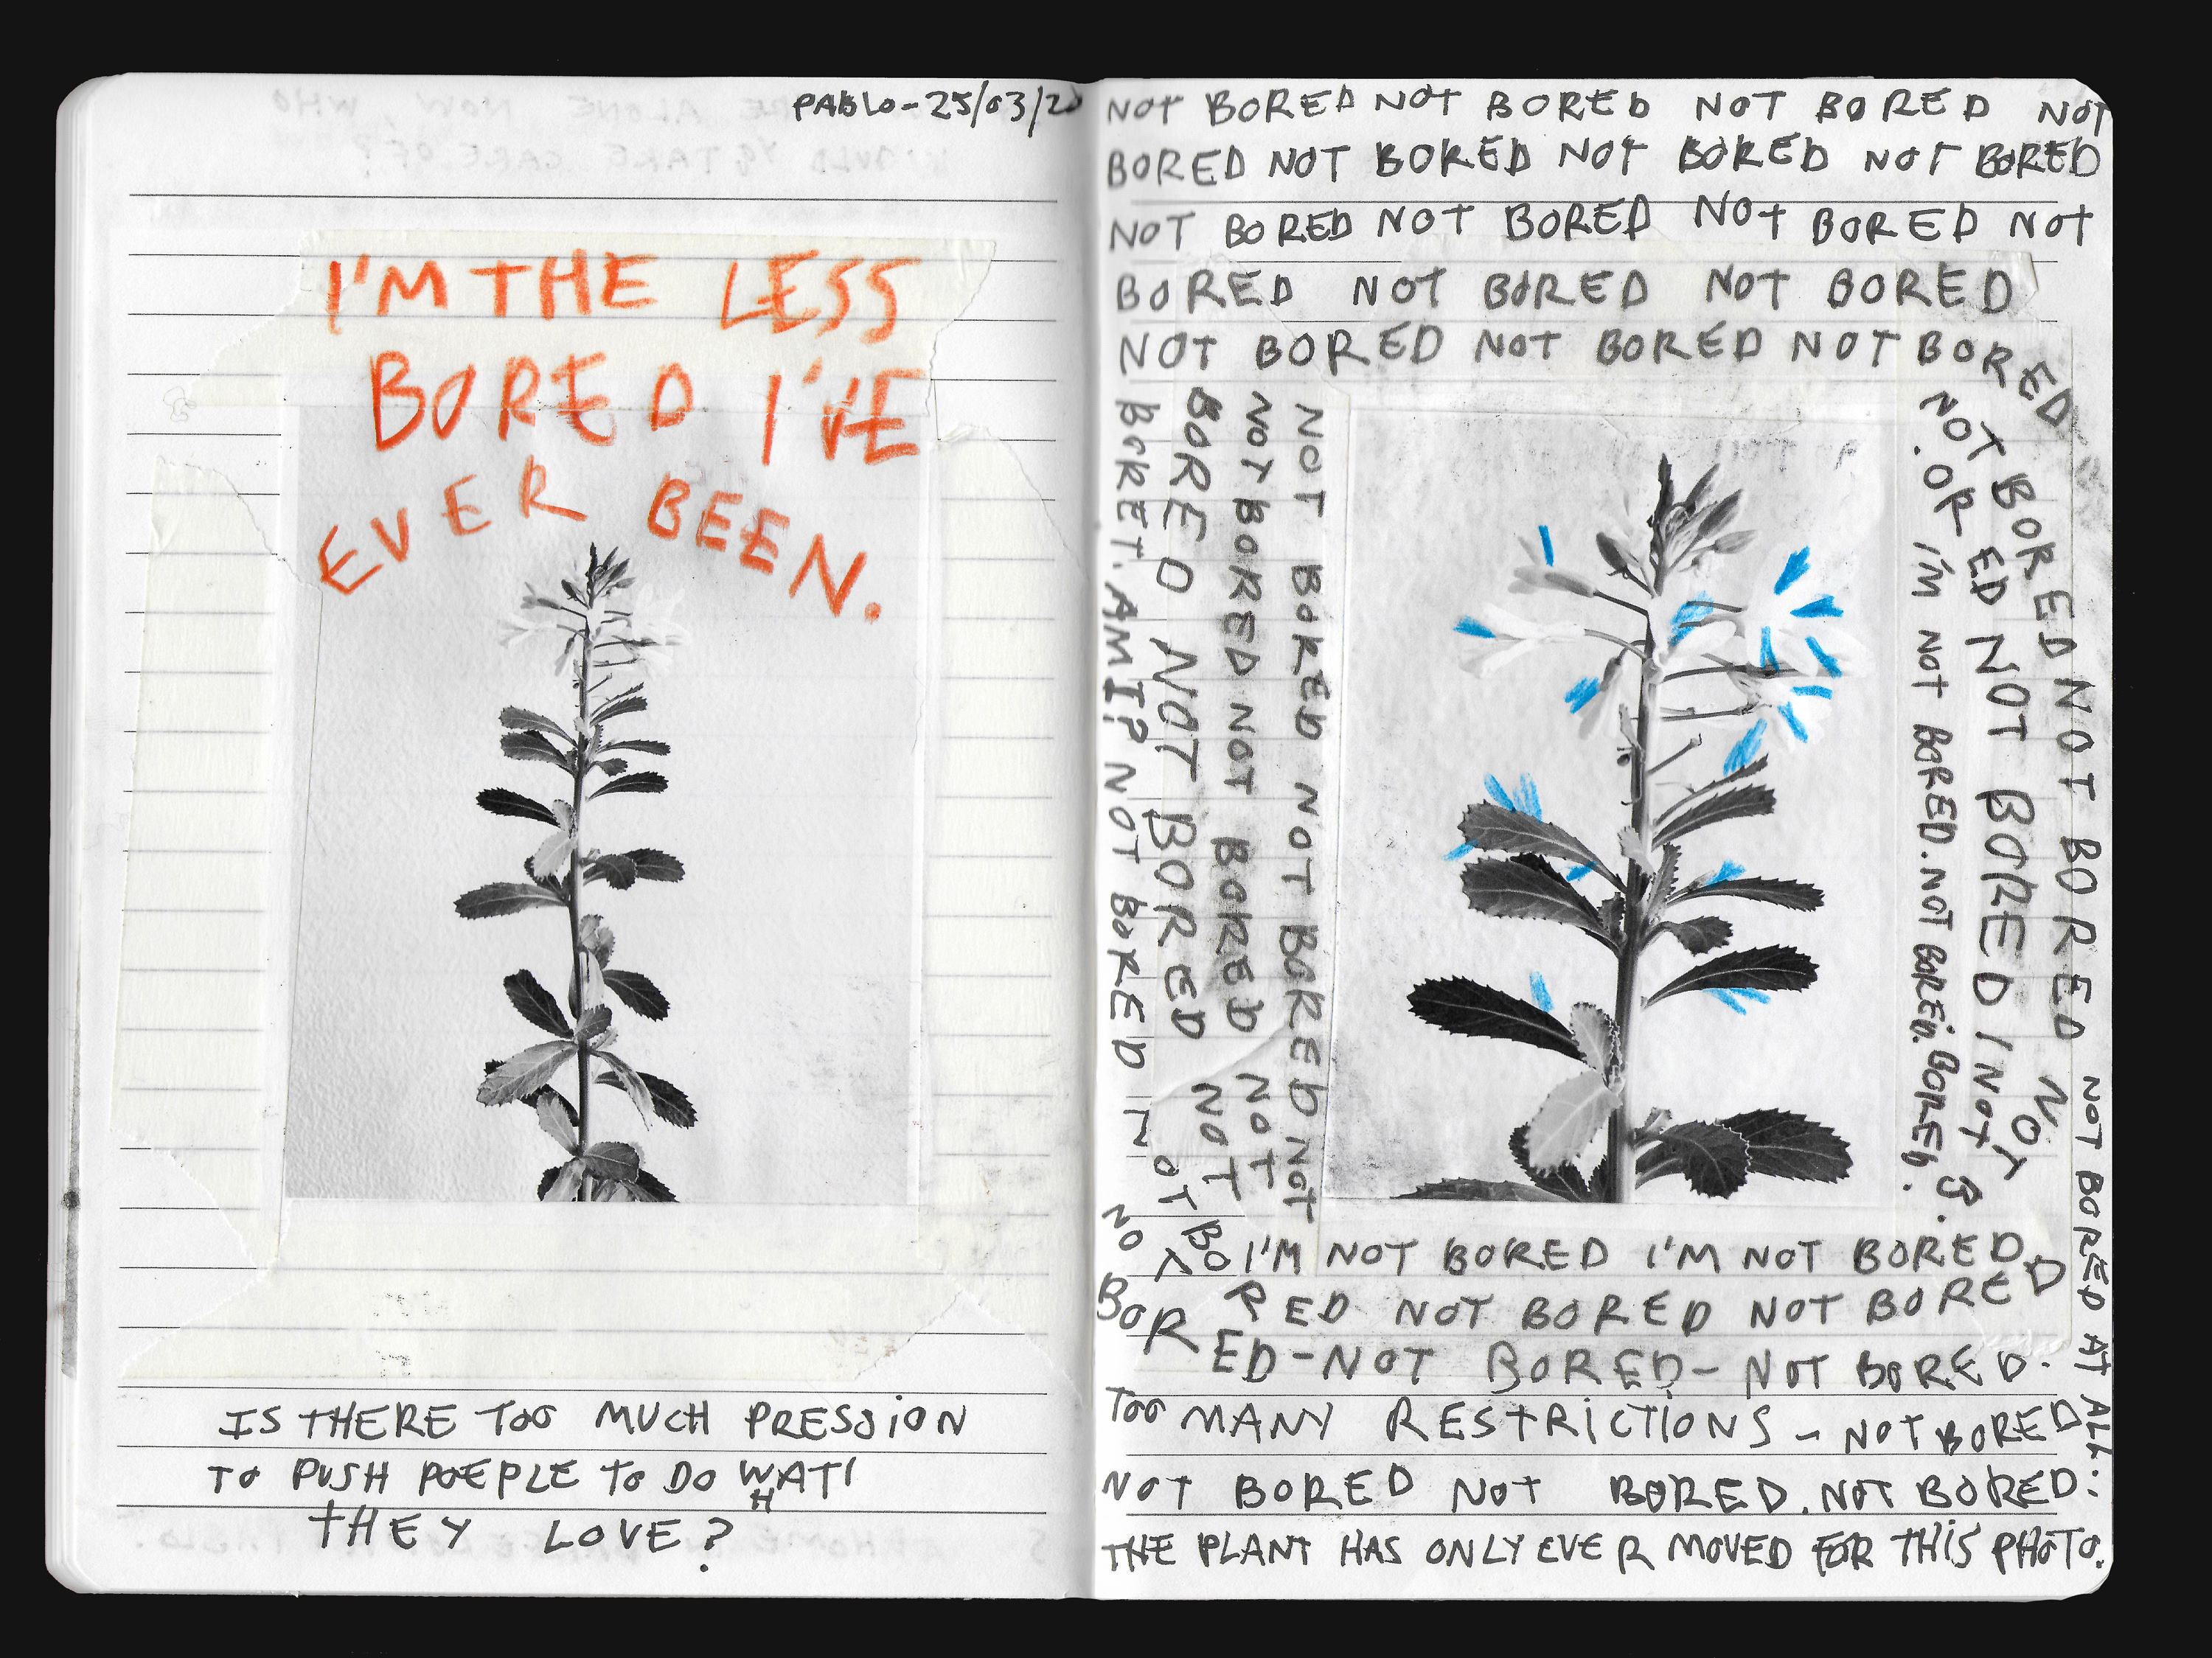 PABLO-25/03/20
I'M THE LESS
BORED I'VE
EVER BEEN.
IS THERE TOO MUCH PRESSION
TO PUSH POEPLE TO DO WHAT
THEY LOVE?
NOT BORED NOT BORED NOT BORED NOT
BORED NOT BORED NOT BORED NOT BORED
NOT BORED NOT BORED NOT BORED NOT
BORED NOT BORED NOT BORED
NOT BORED NOT BORED NOT BORED
NOT BORED NOT BORED NOT BORED NOT
NOT BORED NOT BORED NOT
BORED NOT BORED NOT
BORET. AM I? NOT BORED
NOT BORED NOT BORED NOT
NOT BORED INOT
I'M NOT BORED. NOT BORED. BORED.
NOT BORED AT ALL
I'M NOT BORED I'M NOT BORED
RED NOT BORED NOT BORED
BORED-NOT BORED-NOT BORED.
TOO MANY RESTRICTIONS - NOT BORED
NOT BORED NOT BORED. NOT BORED:
THE PLANT HAS ONLY EVER MOVED FOR THIS PHOTO.